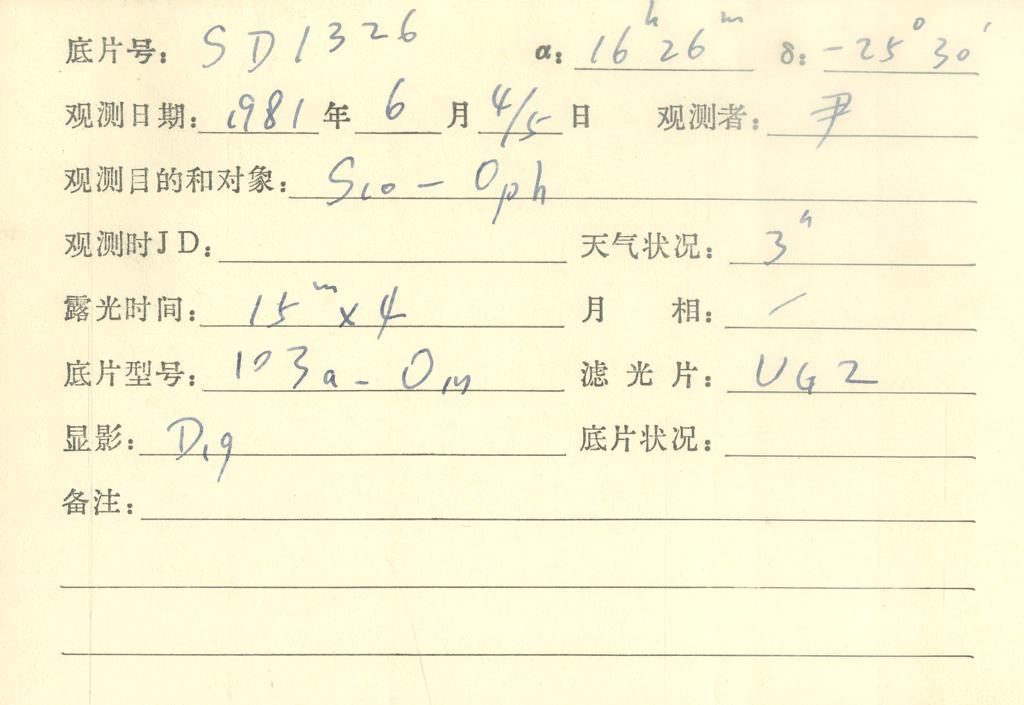 底片号: SD1326 α: 16h 26m δ: -25° 30′
观测日期: 1981 年 6 月 4/5 日 观测者: 尹
观测目的和对象: Sco - Oph
观测时JD: 天气状况: 3"
露光时间: 15m x 4 月 相: /
底片型号: 103a-O 滤光片: UG2
显影: D19 底片状况:
备注: